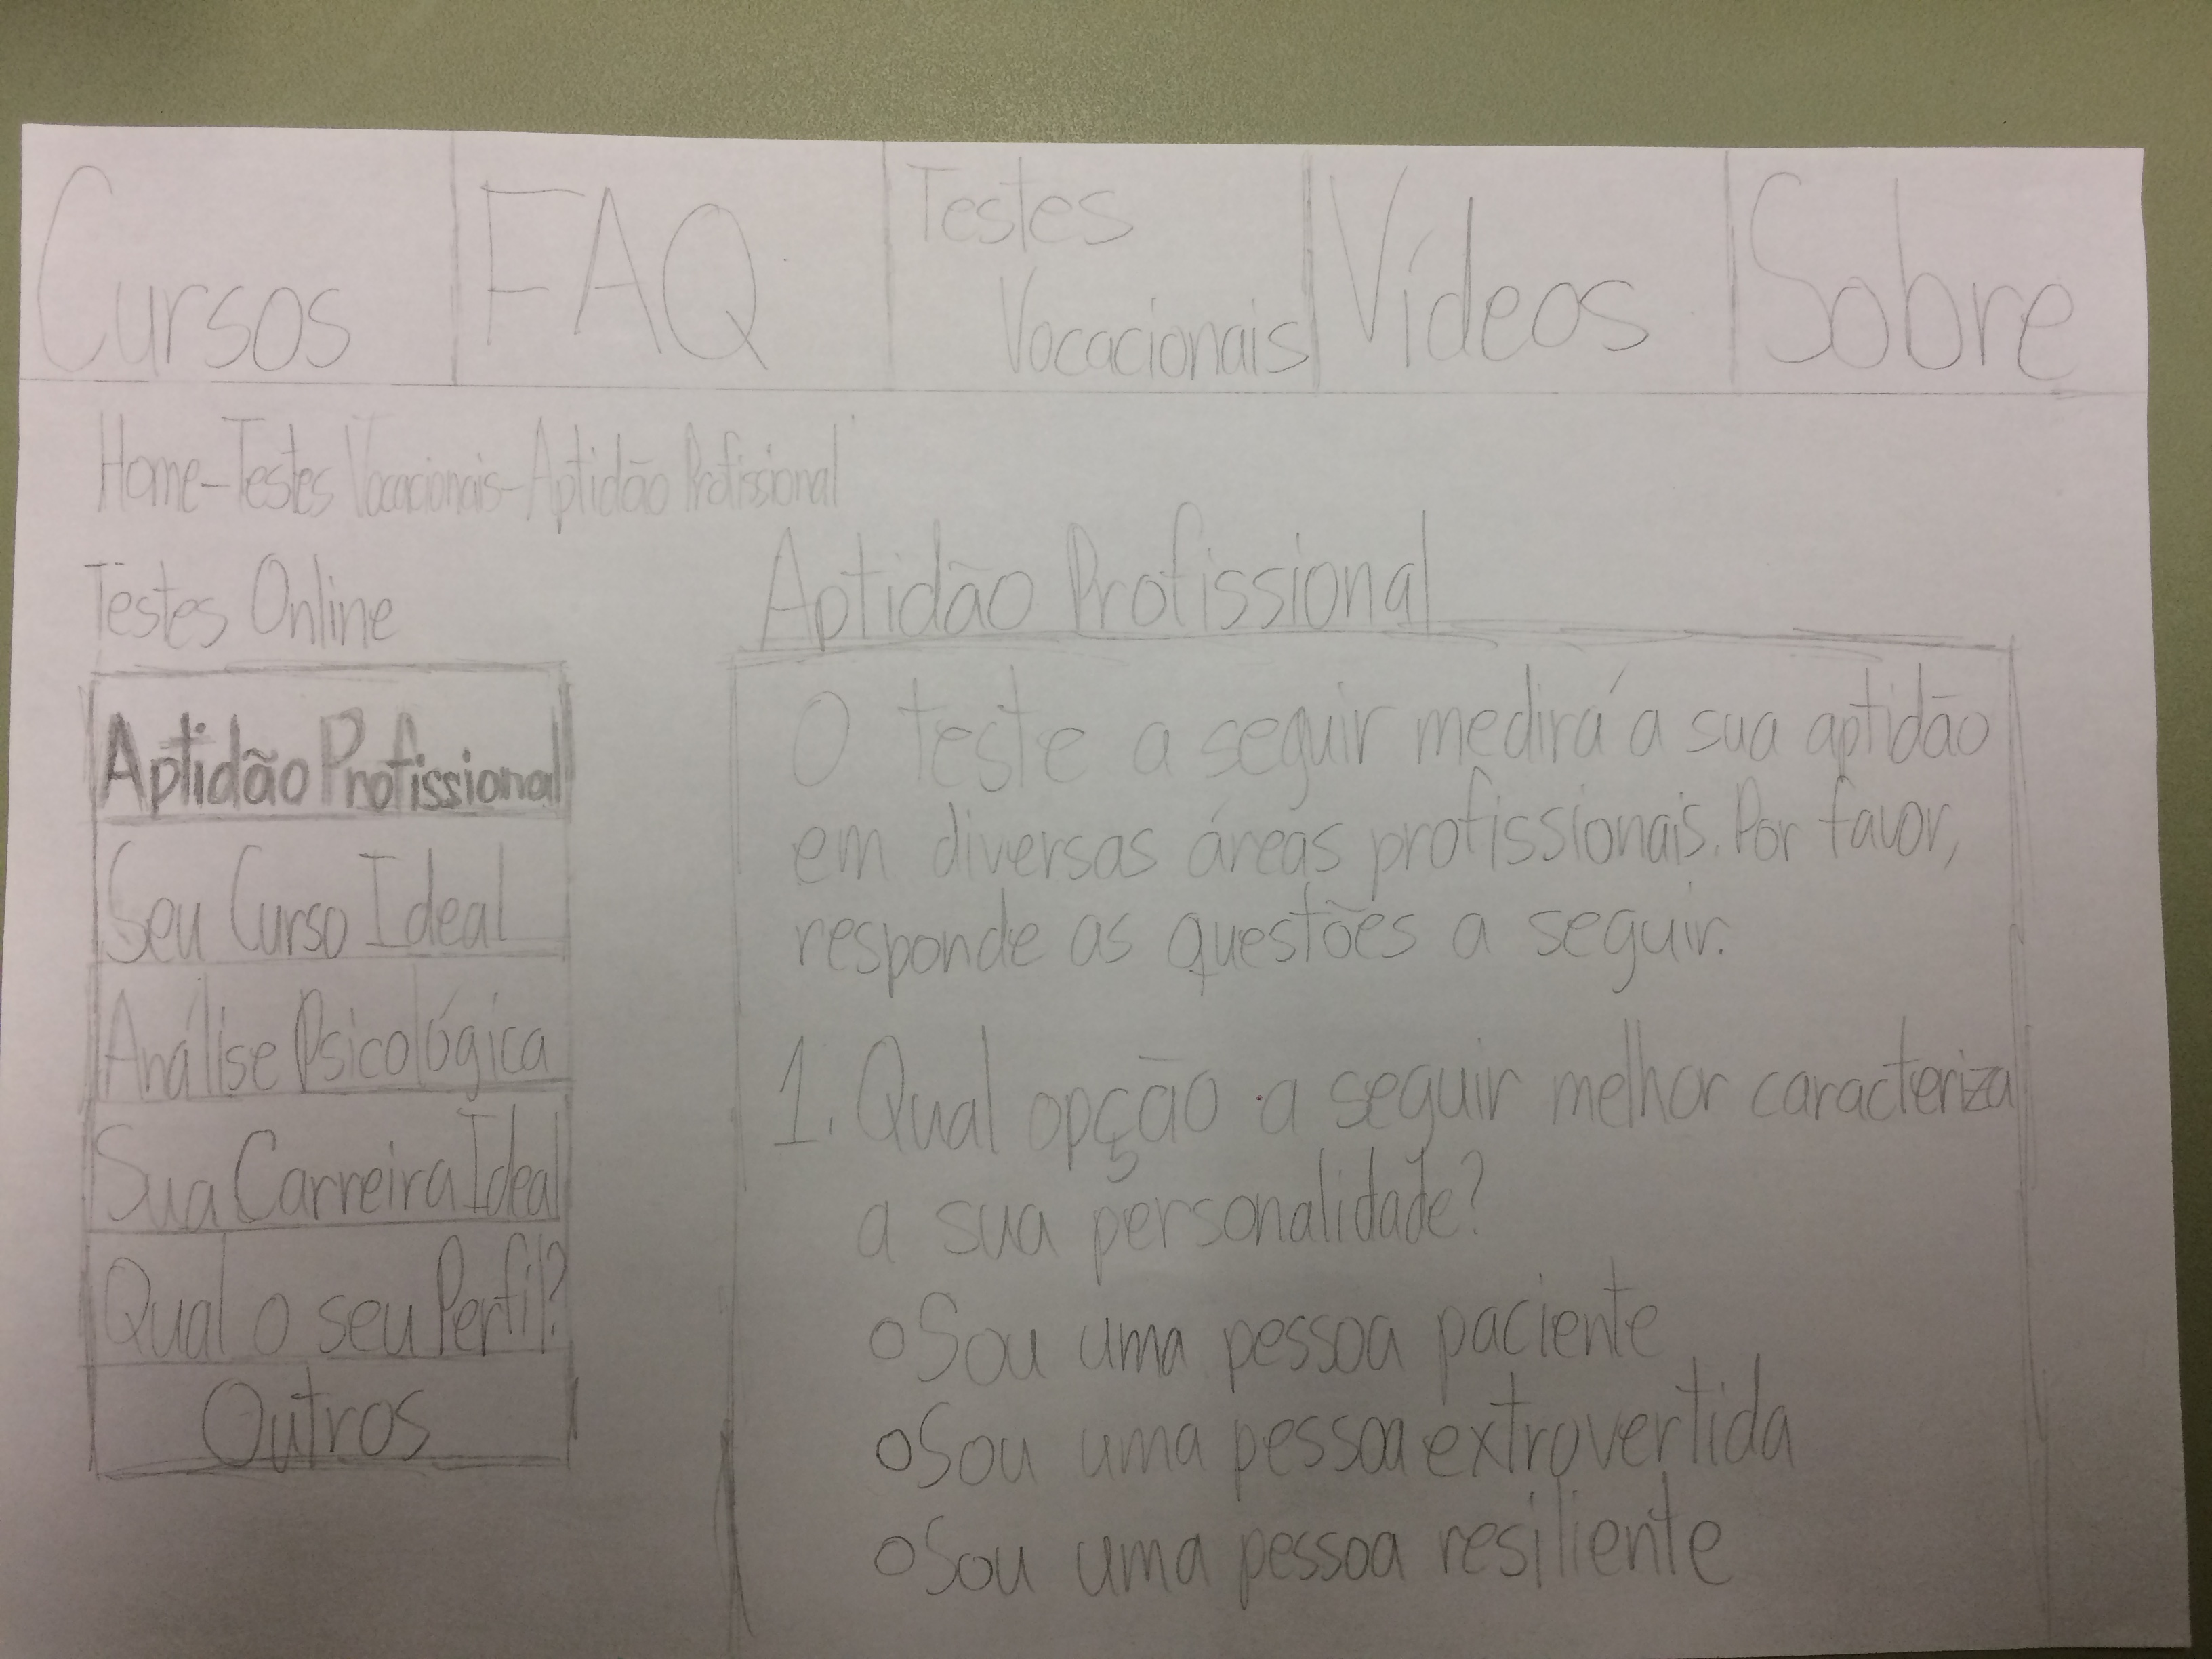 Cursos
FAQ
Testes
Vocacionais
Vídeos
Sobre
Home-Testes Vocacionais-Aptidão Profissional
Testes Online
Aptidão Profissional
Seu Curso Ideal
Análise Psicológica
Sua Carreira Ideal
Qual o seu Perfil?
Outros
Aptidão Profissional
O teste a seguir medirá a sua aptidão
em diversas áreas profissionais. Por favor,
responde as questões a seguir.
1. Qual opção a seguir melhor caracteriza
a sua personalidade?
Sou uma pessoa paciente
Sou uma pessoa extrovertida
Sou uma pessoa resiliente